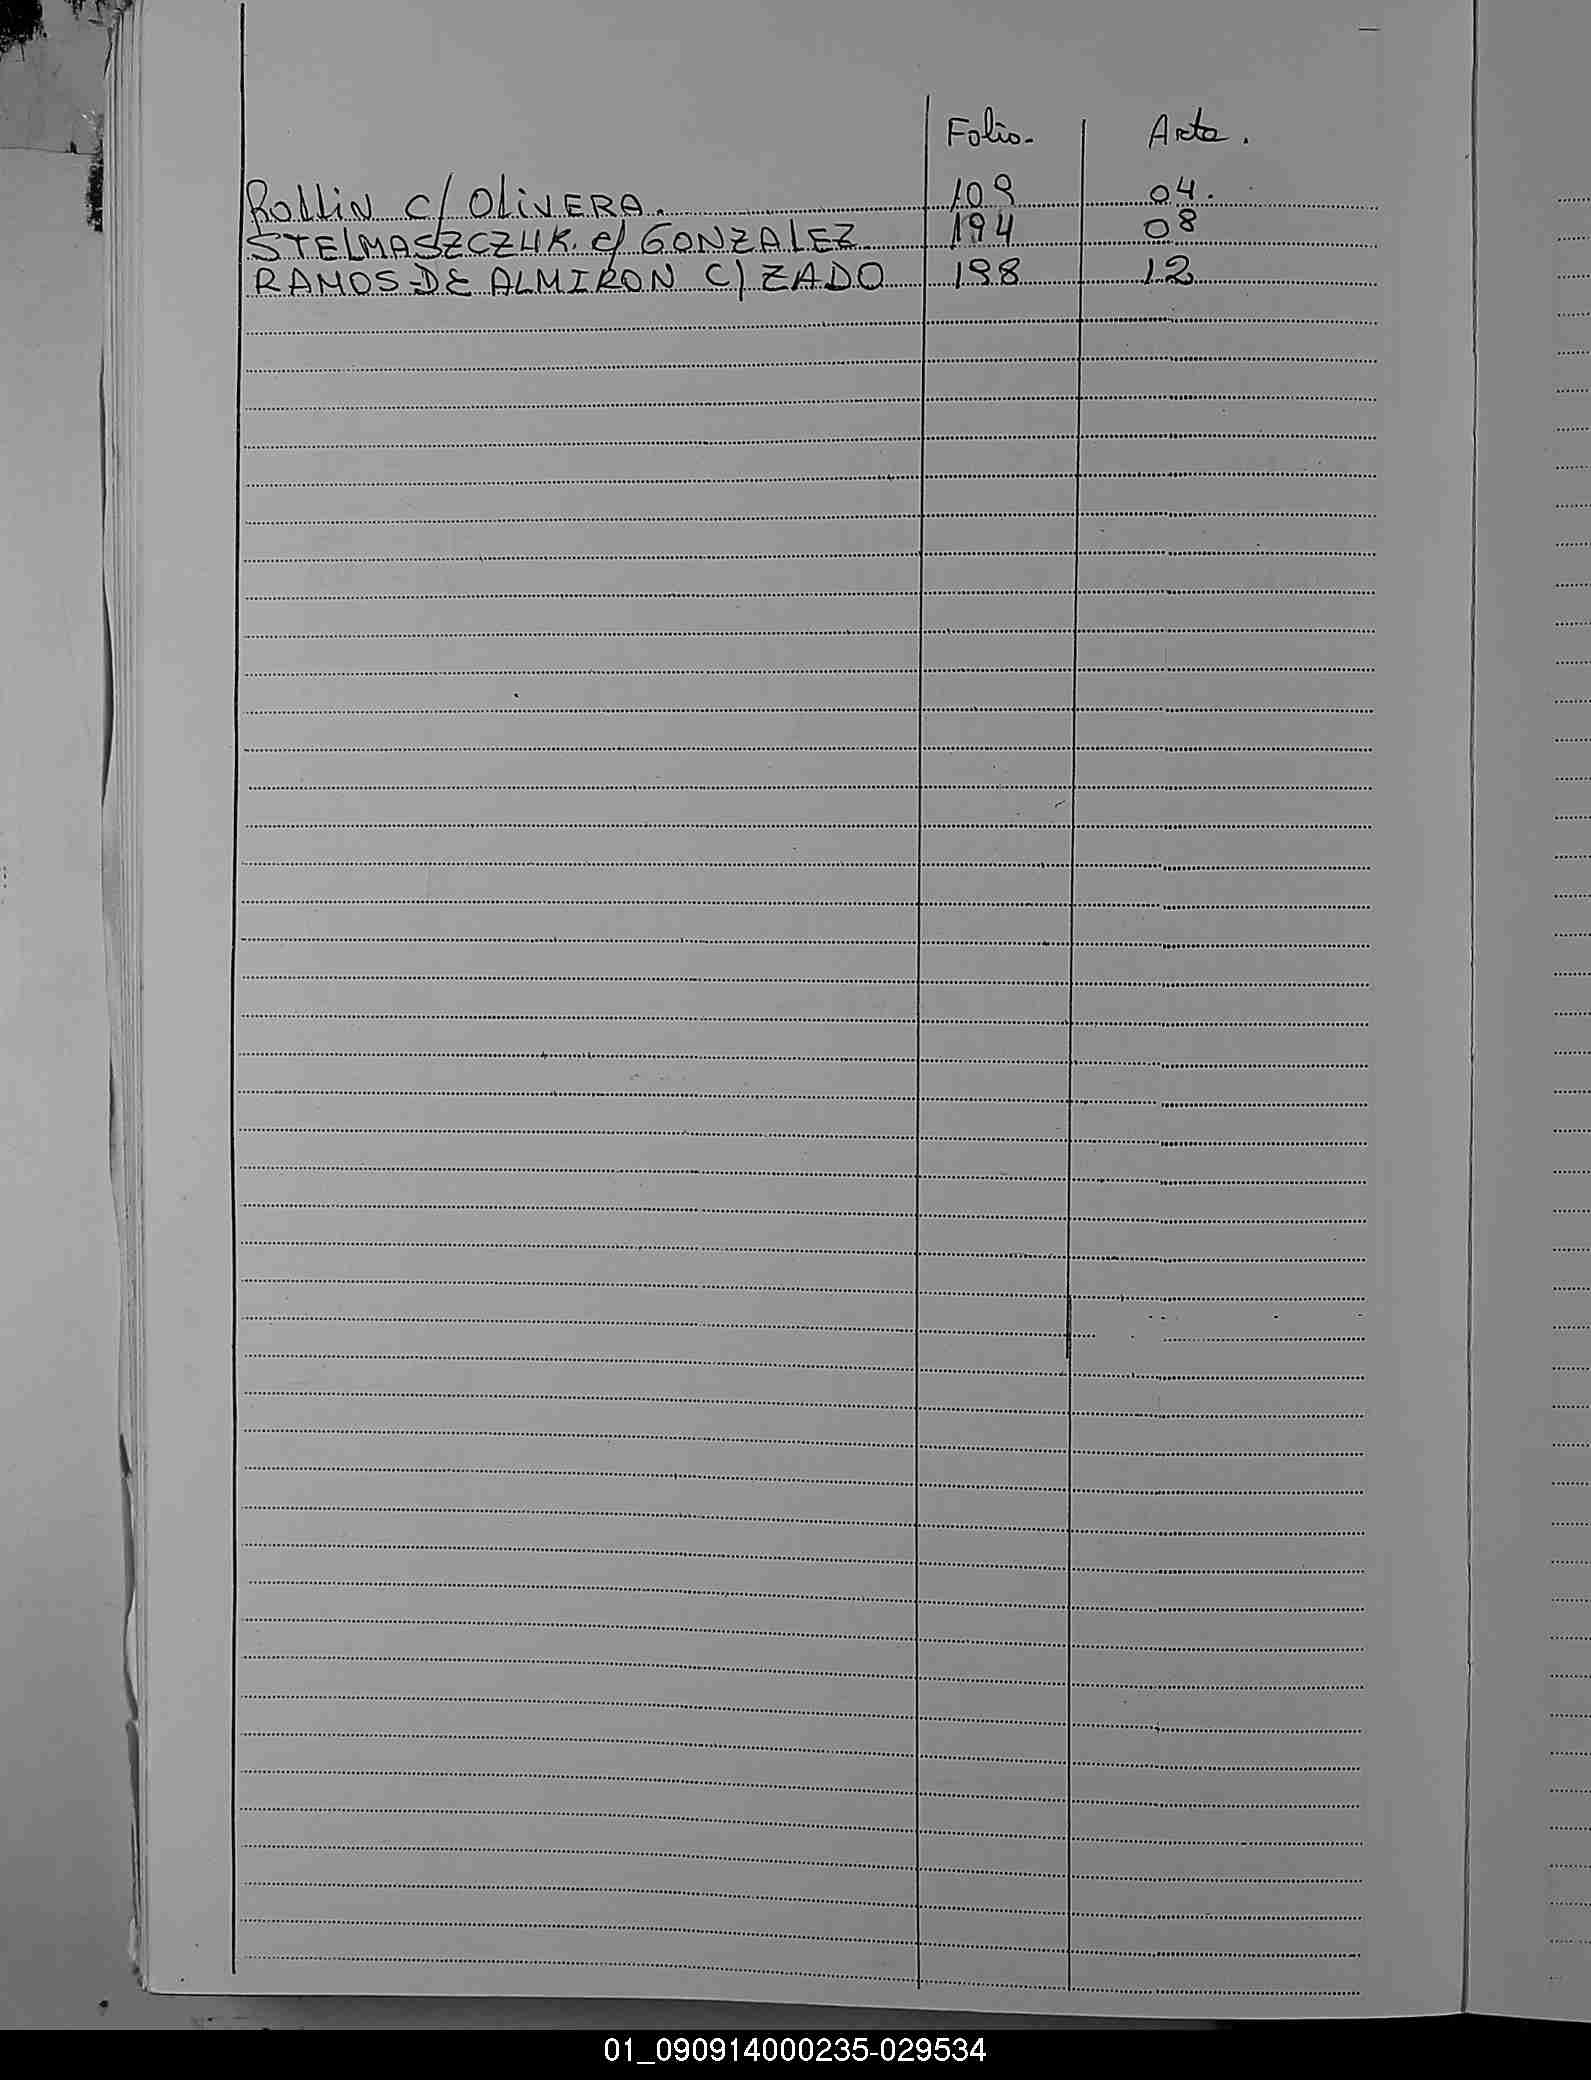 Folio. Acta.
Rollin c/ Olivera. 109 04.
STELMASZCZUK. c/ GONZALEZ 194 08
RAMOS DE ALMIRON C/ ZADO 198 12
01_090914000235-029534